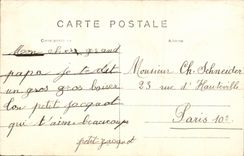 CARTE POSTALE
Correspondance
Adresse
Mon cher grand
papa je te dit
un gros gros baiser
ton petit jacquot
qui t'aime beaucoup
petit jacquot
Monsieur Ch. Schneider
23 rue d'Hauteville
Paris 10e